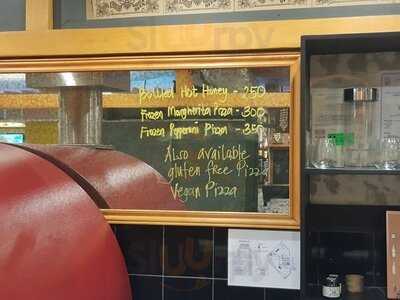 Bottled Hot Honey - 250
Frozen Margherita Pizza - 300
Frozen Pepperoni Pizza - 350
Also available
gluten free Pizza
Vegan Pizza